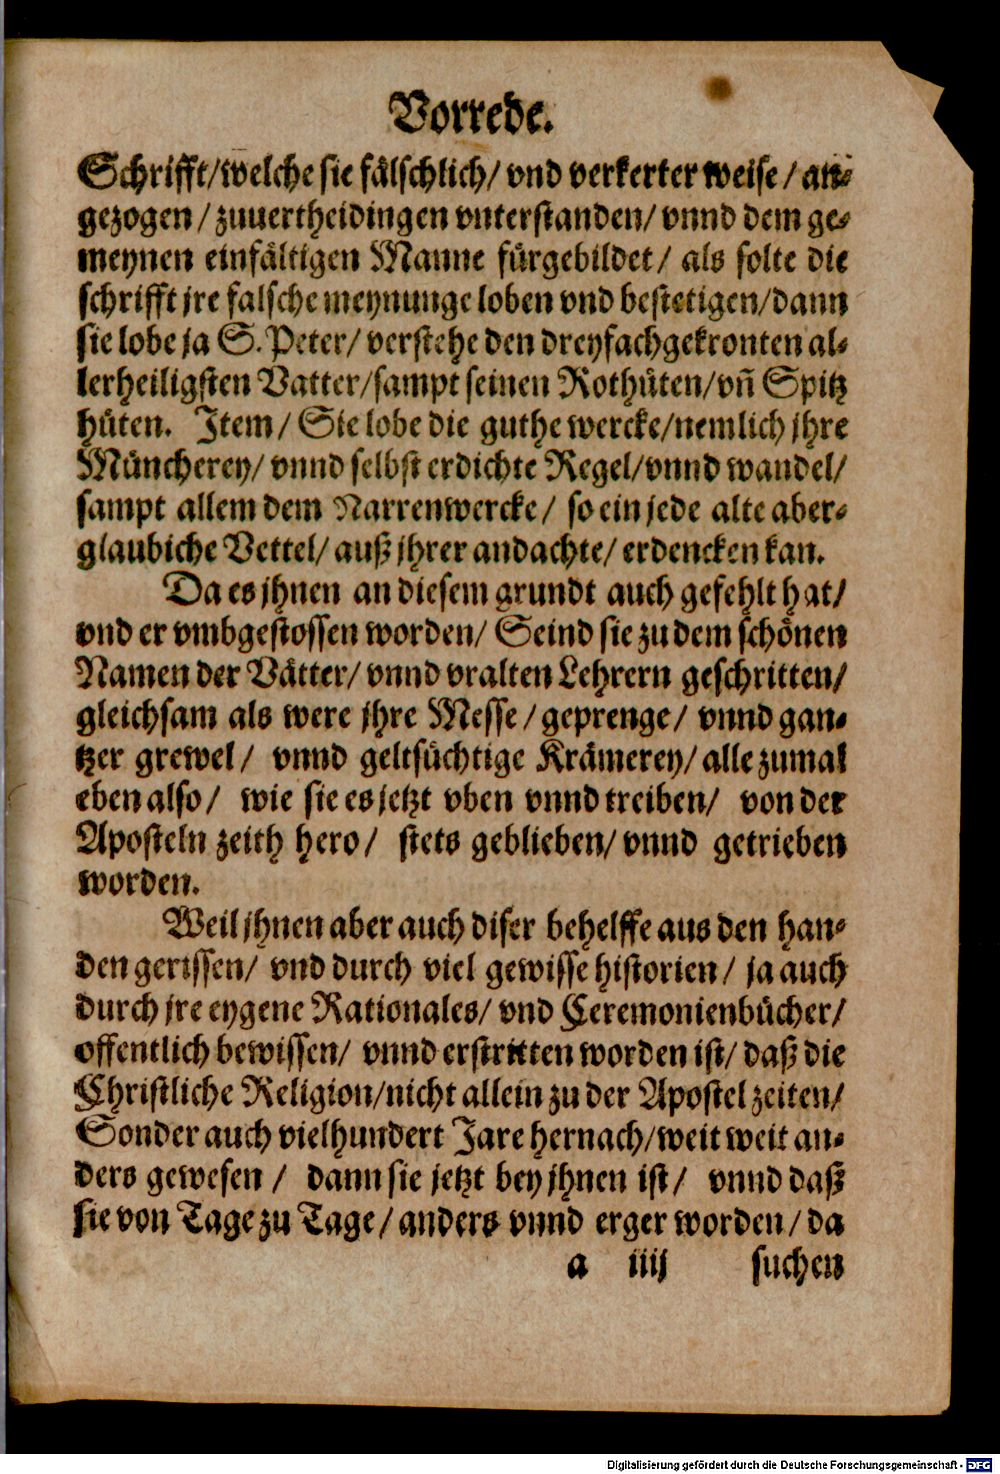 Vorrede.
Schrifft/welche sie fälschlich/ vnd verkerter weise / an-
gezogen / zuuertheidingen vnterstanden/ vnnd dem ge-
meynen einfältigen Manne fürgebildet/ als solte die
schrifft jre falsche meynunge loben vnd bestetigen/dann
sie lobe ja S. Peter/ verstehe den dreyfachgekronten al-
lerheiligsten Vatter/sampt seinen Rothüten/vñ Spitz
hüten. Item/ Sie lobe die guthe wercke/nemlich jhre
Müncherey/ vnnd selbst erdichte Regel/vnnd wandel/
sampt allem dem Narrenwercke/ so ein jede alte aber-
glaubiche Vettel/ auß jhrer andachte/ erdencken kan.
Da es jhnen an diesem grundt auch gefehlt hat/
vnd er vmbgestossen worden/ Seind sie zu dem schönen
Namen der Vätter/ vnnd vralten Lehrern geschritten/
gleichsam als were jhre Messe / geprenge/ vnnd gan-
tzer grewel/ vnnd geltsüchtige Krämerey/ alle zumal
eben also/ wie sie es jetzt vben vnnd treiben/ von der
Aposteln zeith hero/ stets geblieben/ vnnd getrieben
worden.
Weil jhnen aber auch diser behelffe aus den han-
den gerissen/ vnd durch viel gewisse historien/ ja auch
durch jre eygene Rationales/ vnd Ceremonienbücher/
offentlich bewissen/ vnnd erstritten worden ist/ daß die
Christliche Religion/nicht allein zu der Apostel zeiten/
Sonder auch vielhundert Jare hernach/weit weit an-
ders gewesen / dann sie jetzt bey jhnen ist/ vnnd daß
sie von Tage zu Tage/ anders vnnd erger worden/ da
a iiij suchen
Digitalisierung gefördert durch die Deutsche Forschungsgemeinschaft - DFG